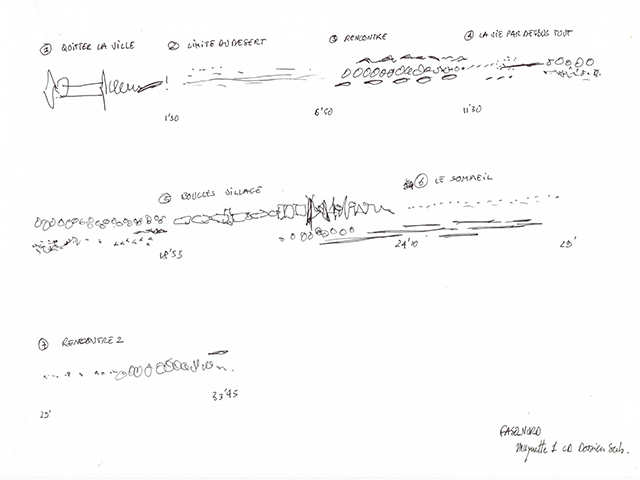 ① QUITTER LA VILLE ② LIMITE DU DESERT ③ RENCONTRE ④ LA VIE PAR DESSUS TOUT
1'30 6'50 11'30
⑤ BOUCLES VILLAGE ⑥ LE SOMMEIL
18'55 24'10 29'
⑦ RENCONTRE 2
33'45
FASE NORD
Maquette 1 CD Dossier